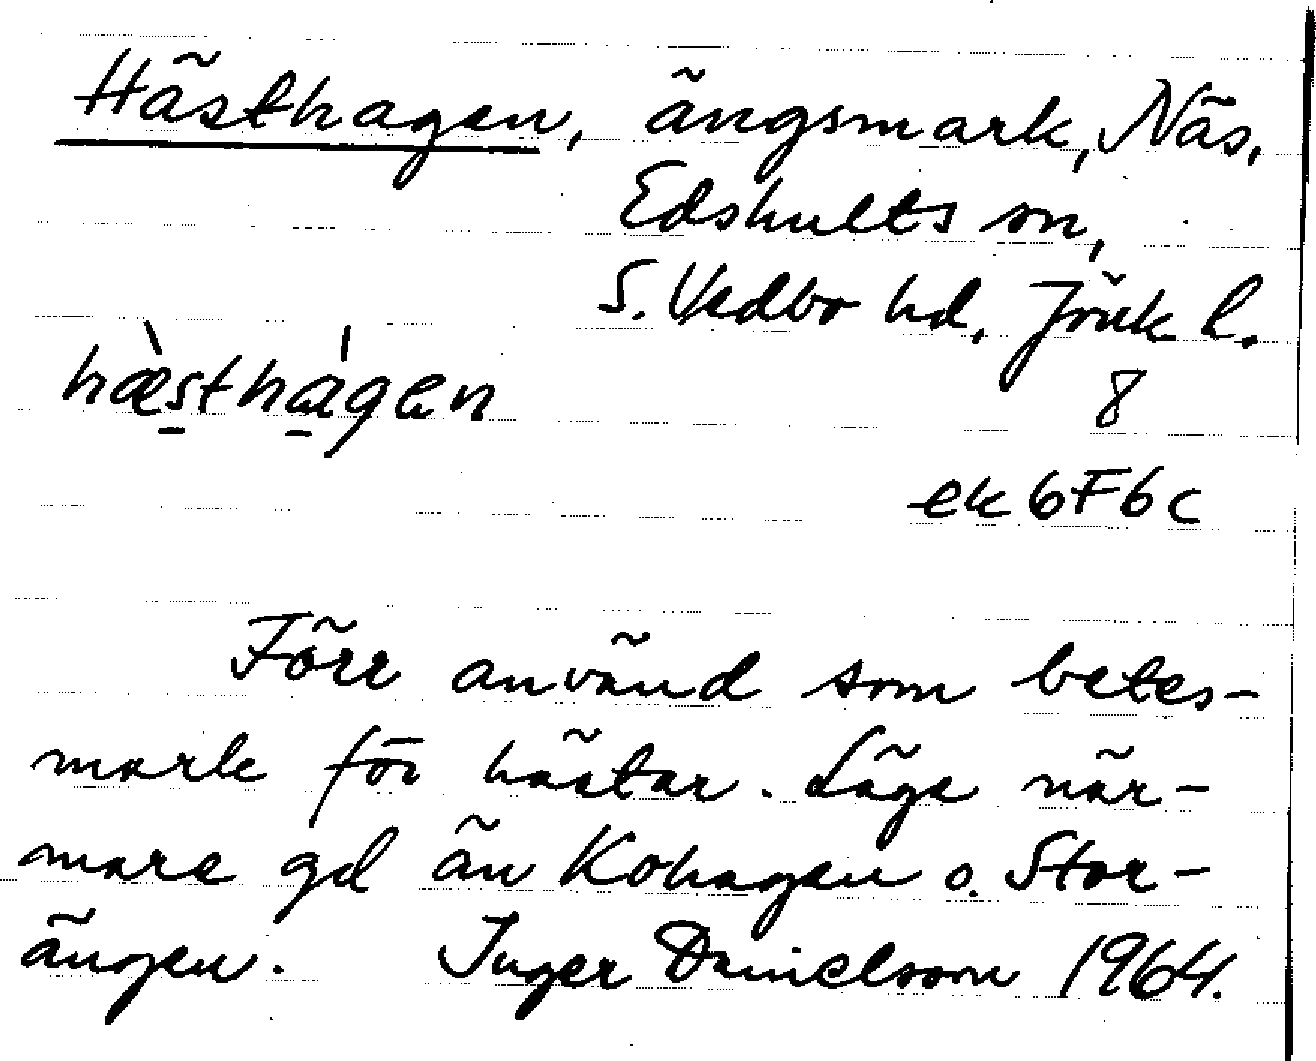 Hästhagen, ängsmark, Näs,
Edshults sn,
S. Vedbo hd, Jönk l.
hæ̀sthágen
8
ek 6F6c
Förr använd som betes-
mark för hästar. Läge när-
mare gd än Kohagen o. Stor-
ängen. Inger Danielsson 1964.